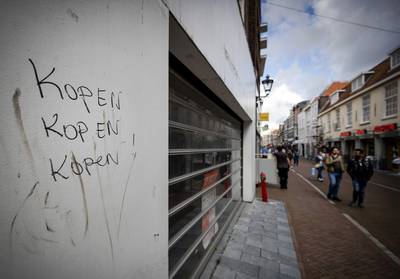 KOPEN
KOPEN
KOPEN!